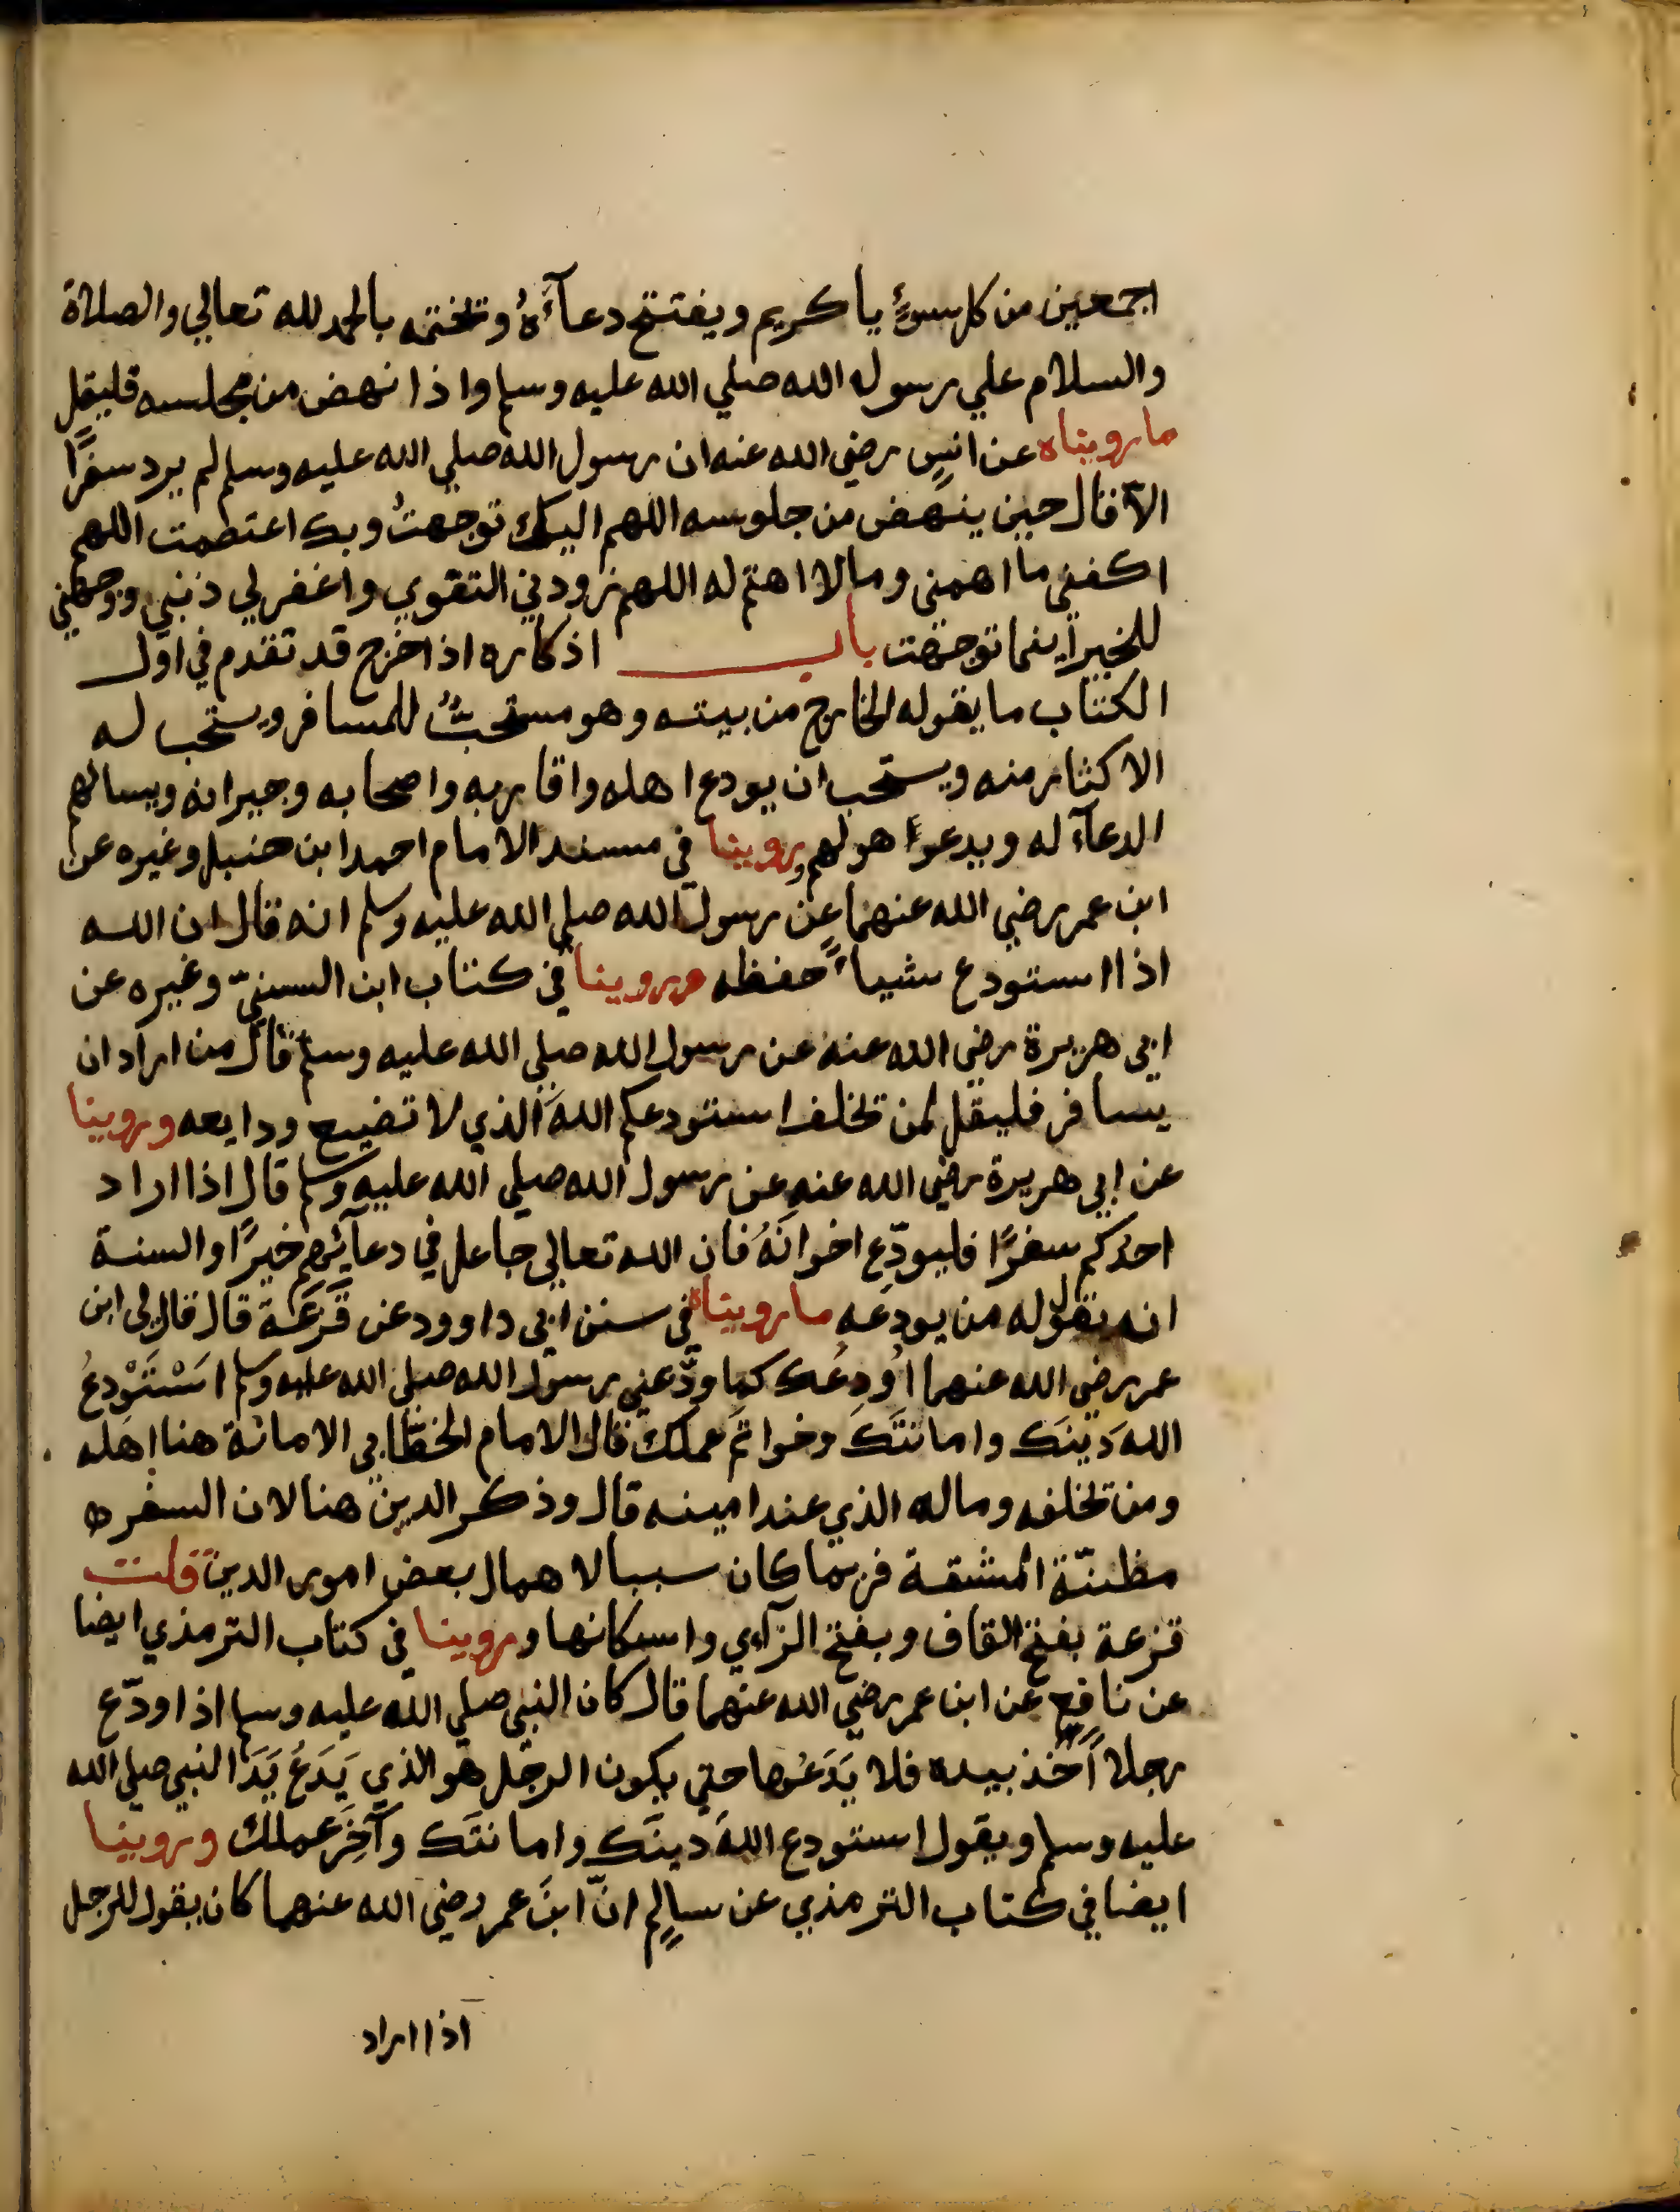 اجمعين من كل سوءٍ يا كريم ويفتتح دعآءَهُ وتختمه بالحمد لله تعالي والصلاة
والسلام علي رسوله الله صلي الله عليه وسلم واذا نهض من مجلسه فليقل
ما رويناه عن انسٍ رضي الله عنه ان رسول الله صلي الله عليه وسلم لم يرد سفرًا
الاّ قال حين ينهض من جلوسه اللهم اليك توجهتُ وبك اعتصمت اللهم
اكفني ما اهمني ومالا اهتم له اللهم زودني التقوي واغفر لي ذنبي ووجهني
للخير اينما توجهت باب اذكاره اذا خرج قد تقدم في اوّل
الكتاب ما يقوله الخارج من بيته وهو مستحبٌّ للمسافر ويستحب له
الاكثار منه ويستحب ان يودع اهله واقاربه واصحابه وجيرانه ويسالهم
الدعآء له ويدعوا هو لهم وروينا في مسند الامام احمد ابن حنبل وغيره عن
ابن عمر رضي الله عنهما عن رسول الله صلي الله عليه وسلم انه قال ان الله
اذا استودع شياءً حفظه وروينا في كتاب ابن السنيّ وغيره عن
ابي هريرة رضي الله عنه عن رسول الله صلي الله عليه وسلم قال من اراد ان
يسافر فليقل لمن تخلف استودعكم اللهَ الذي لا تضيع ودايعه وروينا
عن ابي هريرة رضي الله عنه عن رسول الله صلي الله عليه وسلم قال اذا اراد
احدكم سفرًا فليودّع اخوانَهُ فان الله تعالي جاعل في دعآئهم خيرًا والسنة
انه يقول له من يودعه ما رويناه في سنن ابي داوود عن قَزَعَة قال قال لي ابن
عمر رضي الله عنهما اُودِعُك كما ودّعني رسول الله صلي الله عليه وسلم اسْتَوْدِعُ
اللهَ دينَك وامانتَكَ وخواتمَ عملك قال الامام الخطّابي الامانة هنا اهله
ومن تخلفه وماله الذي عند امينه قال وذكر الدين هنا لان السفر ه
مظنّة المشقة فربما كان سببا لاهمال بعض امور الدين قلت
قزعة بفتح القاف وبفتح الزاي واسكانها وروينا في كتاب الترمذي ايضا
عن نافع عن ابن عمر رضي الله عنهما قال كان النبي صلي الله عليه وسلم اذا ودّع
رجلا اَخذ بيده فلا يَدَعُها حتي يكون الرجل هو الذي يَدَعُ يَدَ النبي صلي الله
عليه وسلم ويقول استودع اللهَ دينَك وامانتَك وآخِرَ عملك وروينا
ايضا في كتاب الترمذي عن سالمٍ انّ ابنَ عمر رضي الله عنهما كان يقول للرجل
اذا اراد